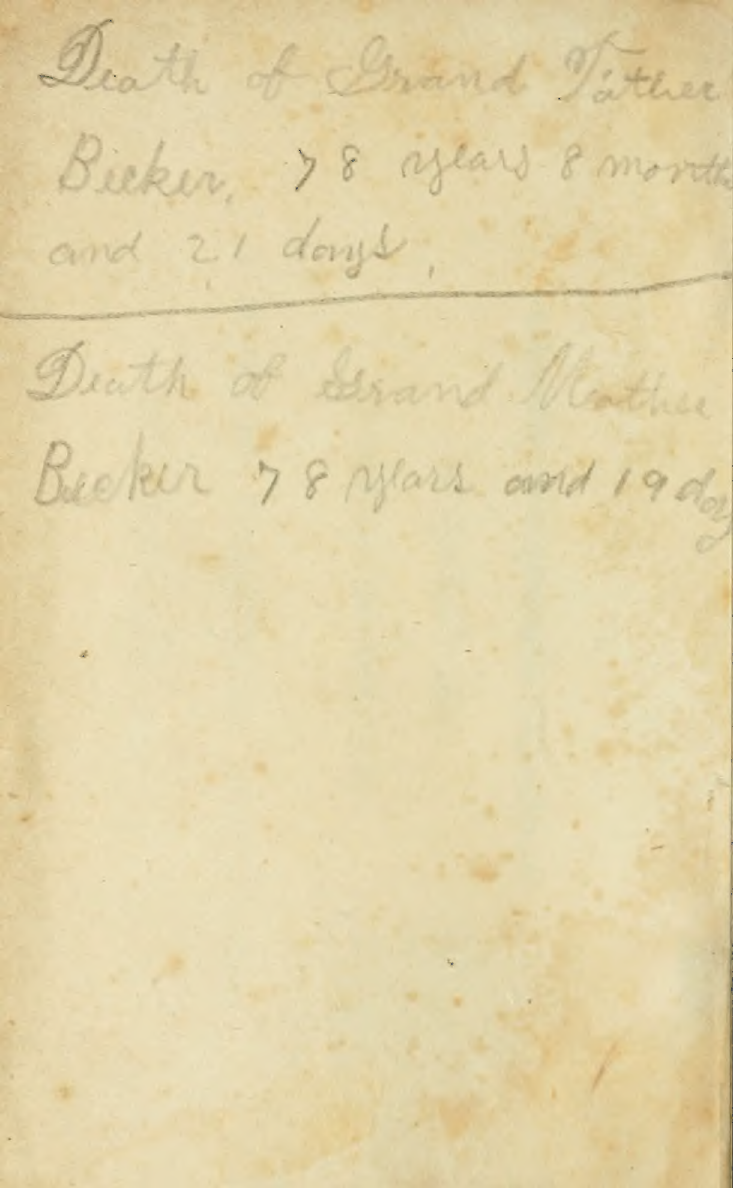 Death of Grand Father
Becker, 78 years 8 months
and 21 days,
Death of Grand Mother
Becker 78 years and 19 days